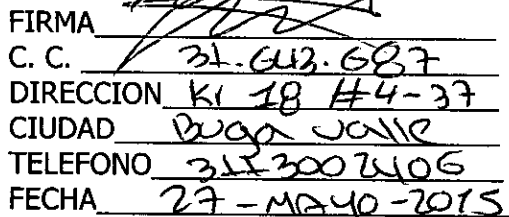 FIRMA
C. C. 31.643.687
DIRECCION Kr 18 #4-37
CIUDAD Buga Valle
TELEFONO 3113002406
FECHA 27-MAYO-2015